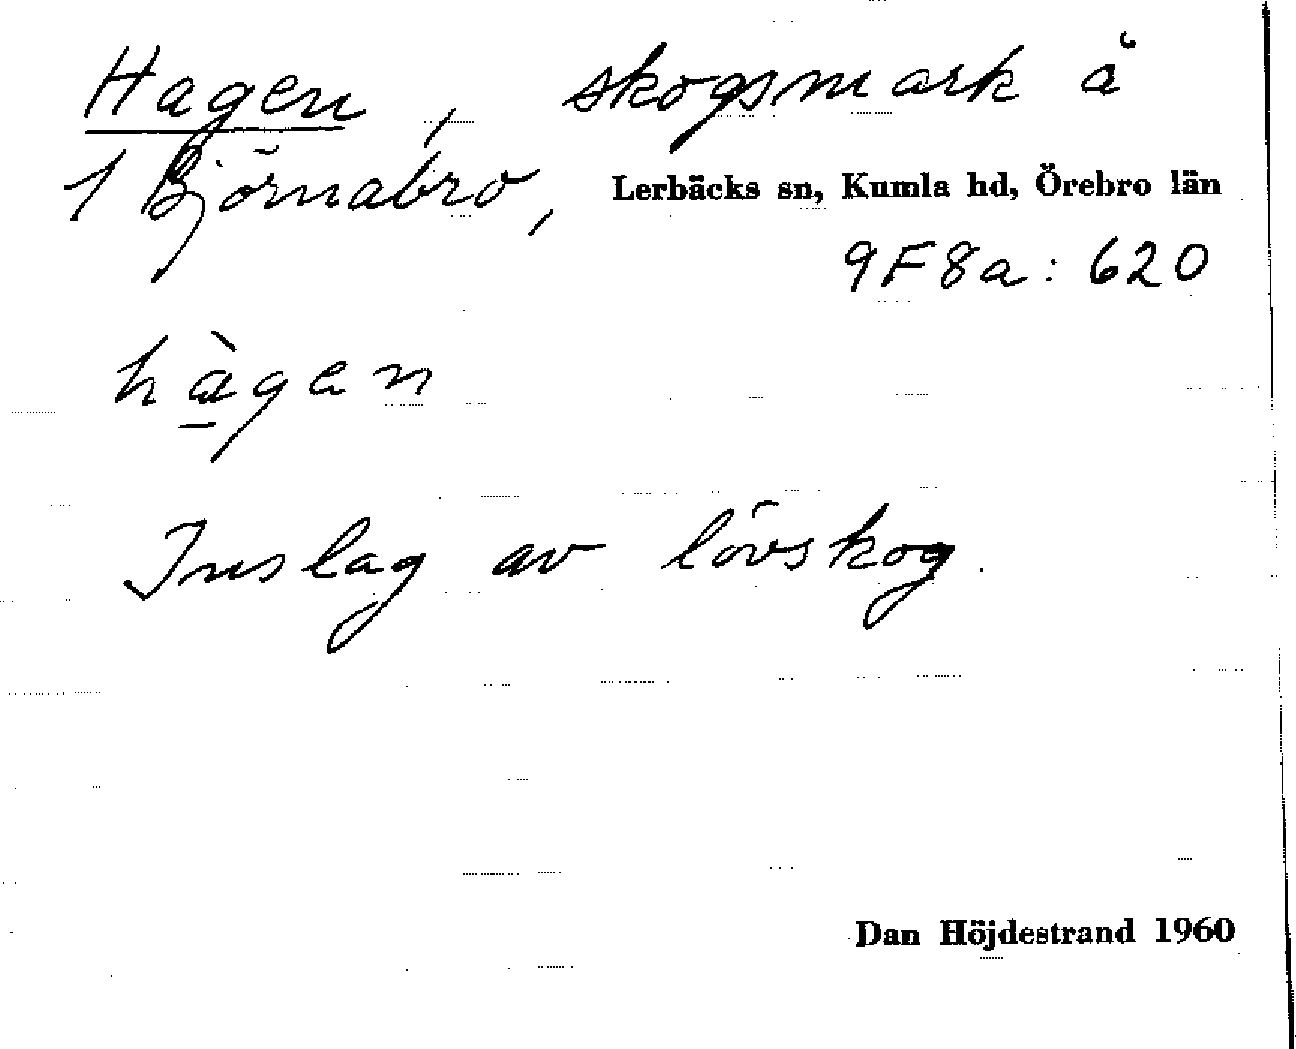 Hagen, skogsmark å
1 Björnabro, Lerbäcks sn, Kumla hd, Örebro län
9F8a: 620
hà̱gen
Inslag av lövskog.
Dan Höjdestrand 1960